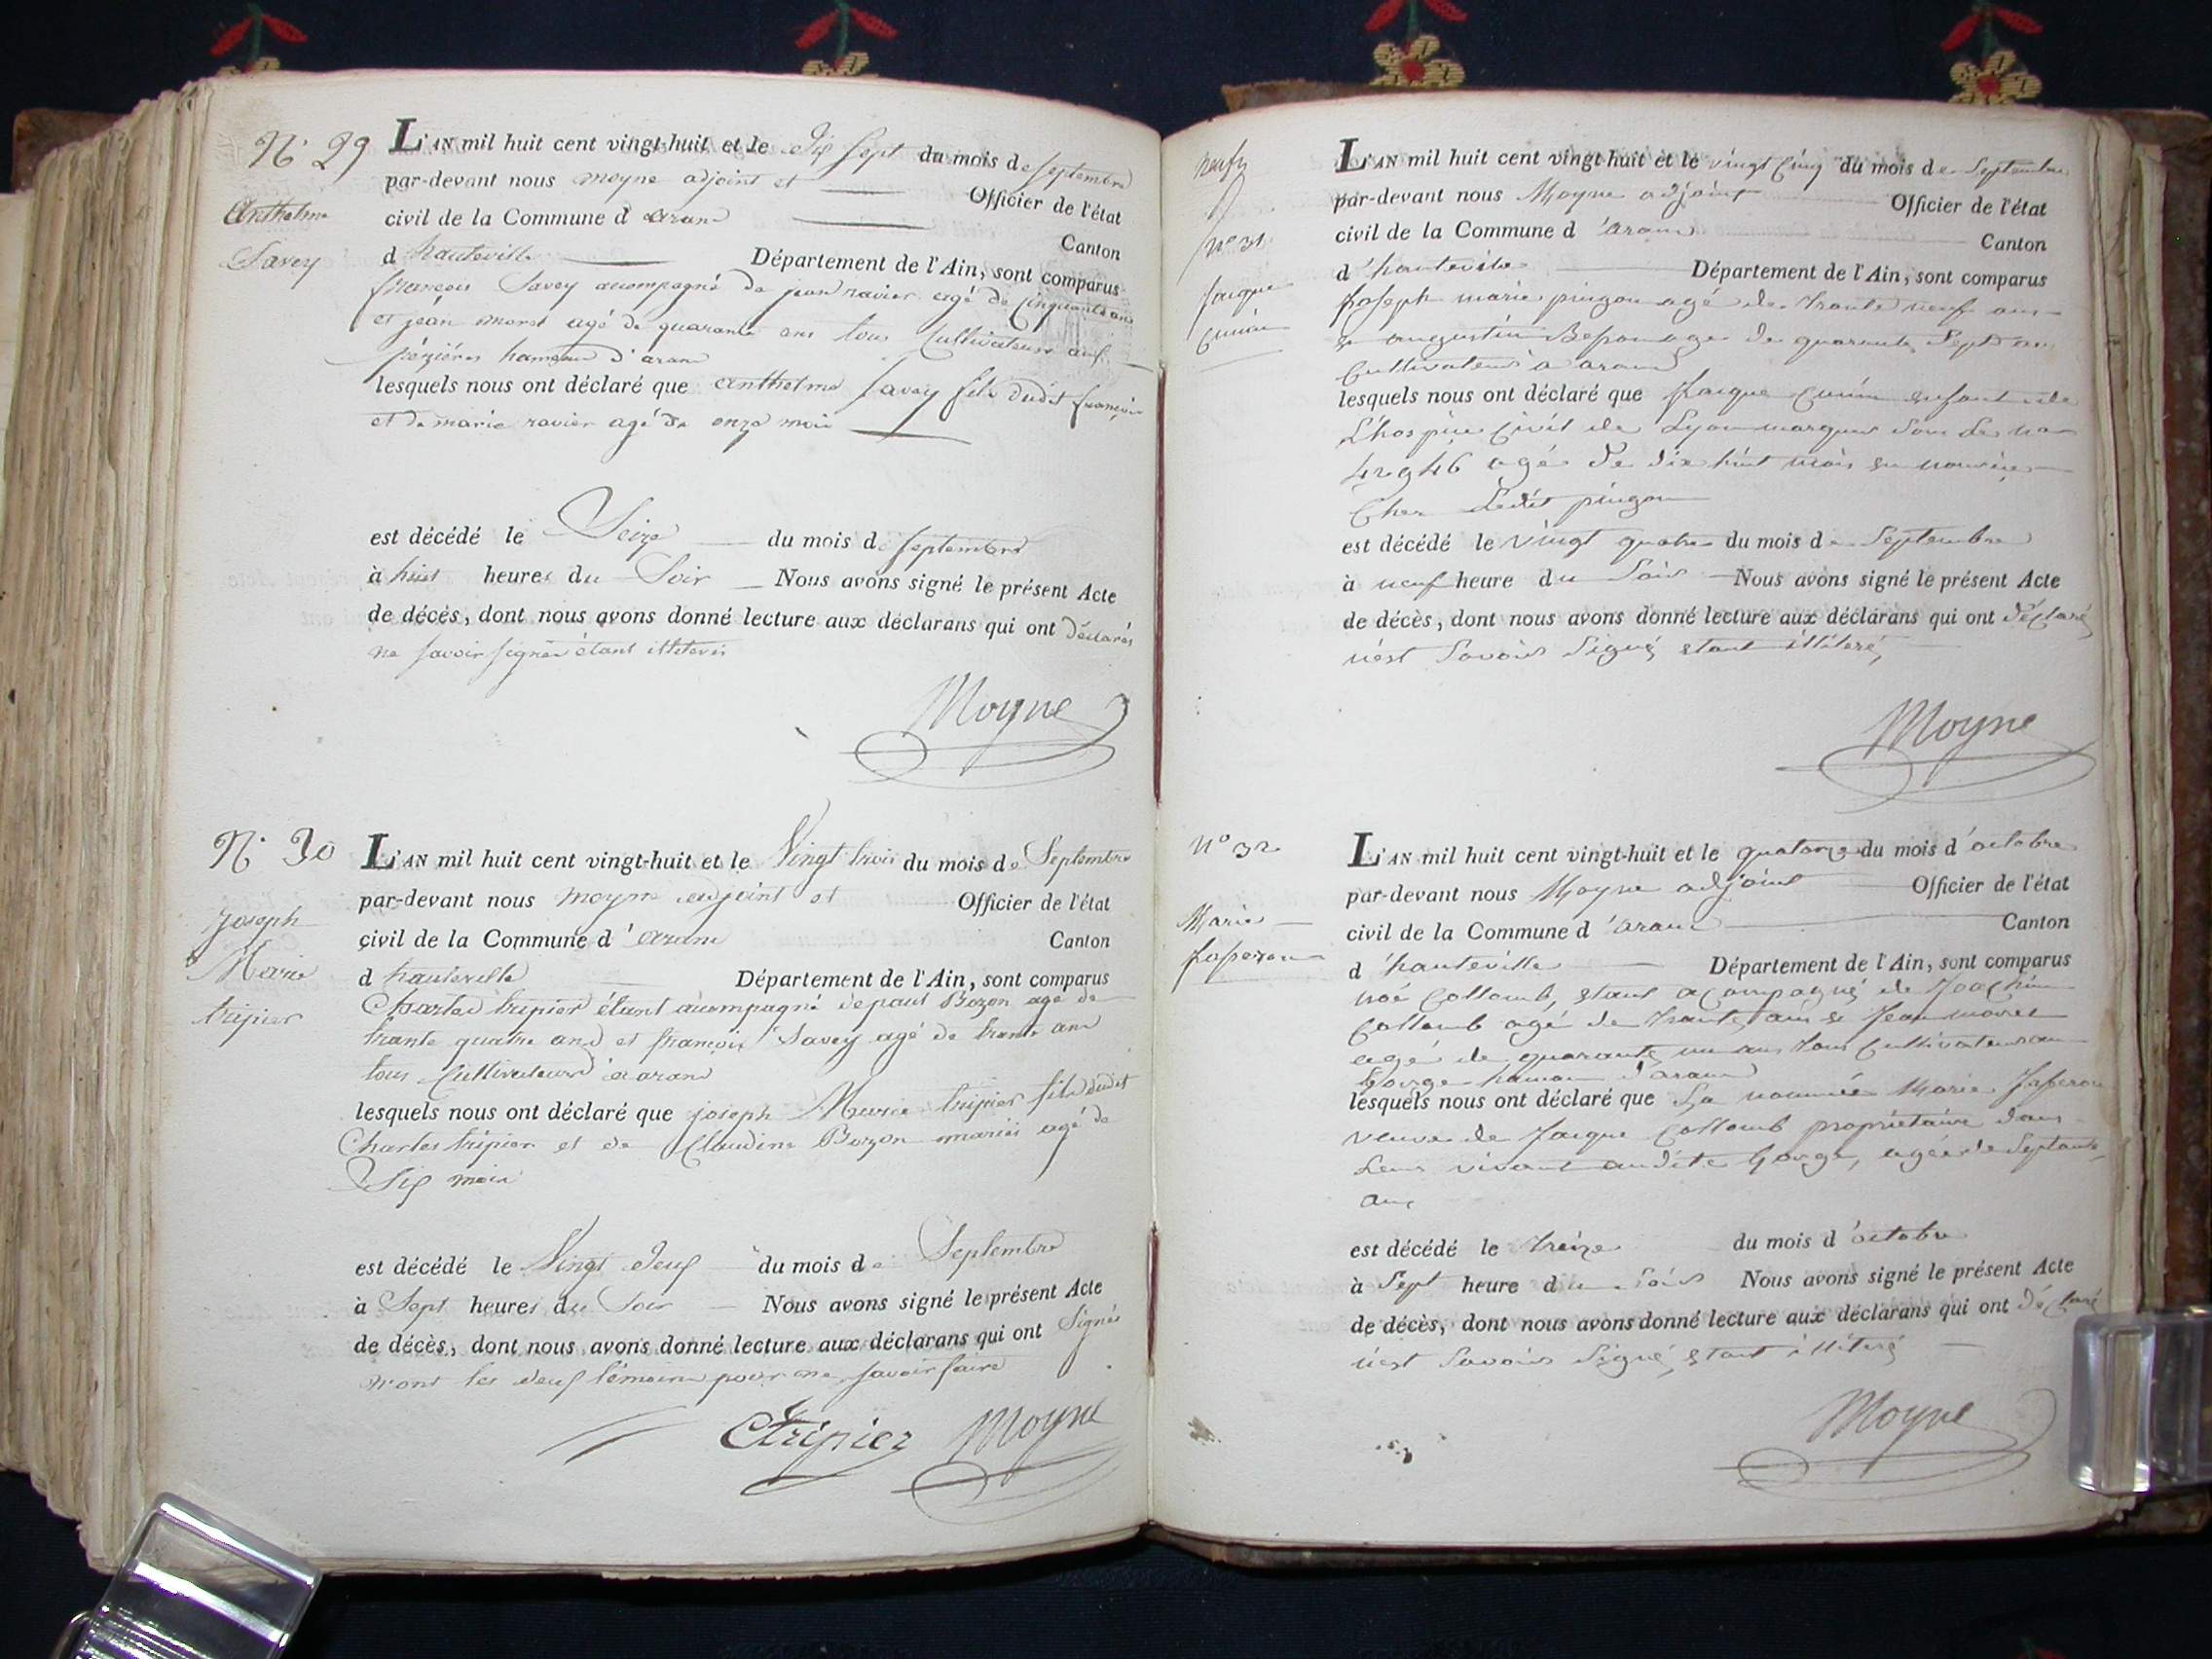 N.° 29
Anthelme
Savey
L'AN mil huit cent vingt-huit et le dix sept du mois de septembre
par-devant nous moyne adjoint et Officier de l'état
civil de la Commune d aranc Canton
d hauteville Département de l'Ain, sont comparus
françois Savey acompagné de jean ravier agé de cinquante ans
et jean moret agé de quarante ans tous Cultivateurs aux
pézières hameau d'aranc
lesquels nous ont déclaré que anthelme Savey fils dudit françois
et de marie ravier agé de onze mois
est décédé le Seize du mois de septembre
à huit heures du Soir Nous avons signé le présent Acte
de décès, dont nous avons donné lecture aux déclarans qui ont déclarés
ne savoir signer étant illiterés
Moyne
N.° 30
Joseph
Marie
tripier
L'AN mil huit cent vingt-huit et le Vingt trois du mois de Septembre
par-devant nous moyne adjoint et Officier de l'état
civil de la Commune d'aranc Canton
d hauteville Département de l'Ain, sont comparus
Charles tripier étant acompagné de paul Bozon agé de
trante quatre ans et françois Savey agé de trante ans
tous Cultivateurs à aranc
lesquels nous ont déclaré que joseph Marie tripier fils dudit
Charles tripier et de Claudine Bozon mariés agé de
Six mois
est décédé le Vingt deux du mois de Septembre
à Sept heures du Soir Nous avons signé le présent Acte
de décès, dont nous avons donné lecture aux déclarans qui ont Signés
n'ont les deux témoins pour ne savoir faire
Ctripier Moyne
N° 31
Jacque
Cunin
L'AN mil huit cent vingt-huit et le vingt Cinq du mois de Septembre
par-devant nous Moyne adjoint Officier de l'état
civil de la Commune d'aranc Canton
d'hauteville Département de l'Ain, sont comparus
Joseph marie pingon agé de trante neuf ans
& augustin agé de quarante Sept ans
Cultivateurs à aranc
lesquels nous ont déclaré que Jacque Cunin enfant de
L'hospice Civil de Lyon marqué Sous Le no
42946 agé De dix huit mois en nourice
Cher Ledit pingon
est décédé le vingt quatre du mois de Septembre
à neuf heure du Soir Nous avons signé le présent Acte
de décès, dont nous avons donné lecture aux déclarans qui ont déclaré
n'est Savoir Signé, etant illiteré,
Moyne
N° 32
Marie
L'AN mil huit cent vingt-huit et le quatorze du mois d'octobre
par-devant nous Moyne adjoint Officier de l'état
civil de la Commune d'aranc Canton
d'hauteville Département de l'Ain, sont comparus
noé Collomb, etant acompagné de Joachim
Collomb agé de trante ans & Jean moret
agé de quarante un ans tous Cultivateurs au
Gorge hamau d'aranc
lesquels nous ont déclaré que La nommée Marie
veuve de Jacque Collomb propriétaire dans
Leur vivant audite Gorge, agée de Septante
ans
est décédé le treize du mois d'octobre
à Sept heure du Soir Nous avons signé le présent Acte
de décès, dont nous avons donné lecture aux déclarans qui ont déclaré
n'est Savoir Signé, etant illiteré
Moyne